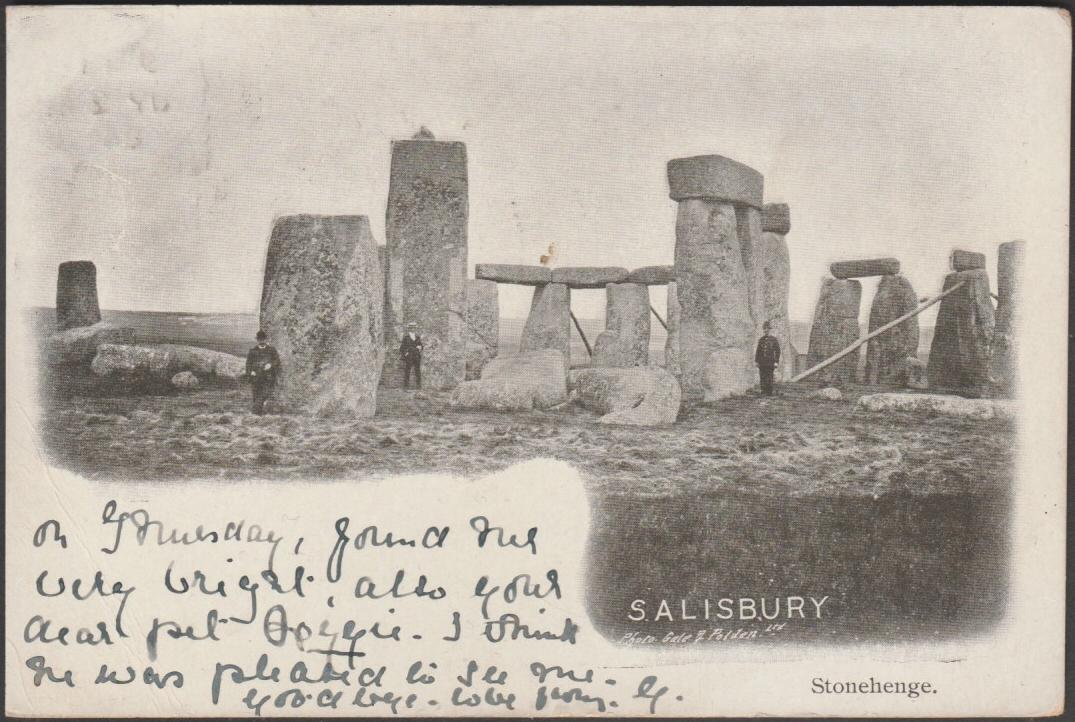 on Thursday, found
very bright, also your
dear pet I think
he was pleased to see me.
Goodbye. love from. G.
SALISBURY
Photo. Gale & Polden Ltd
Stonehenge.